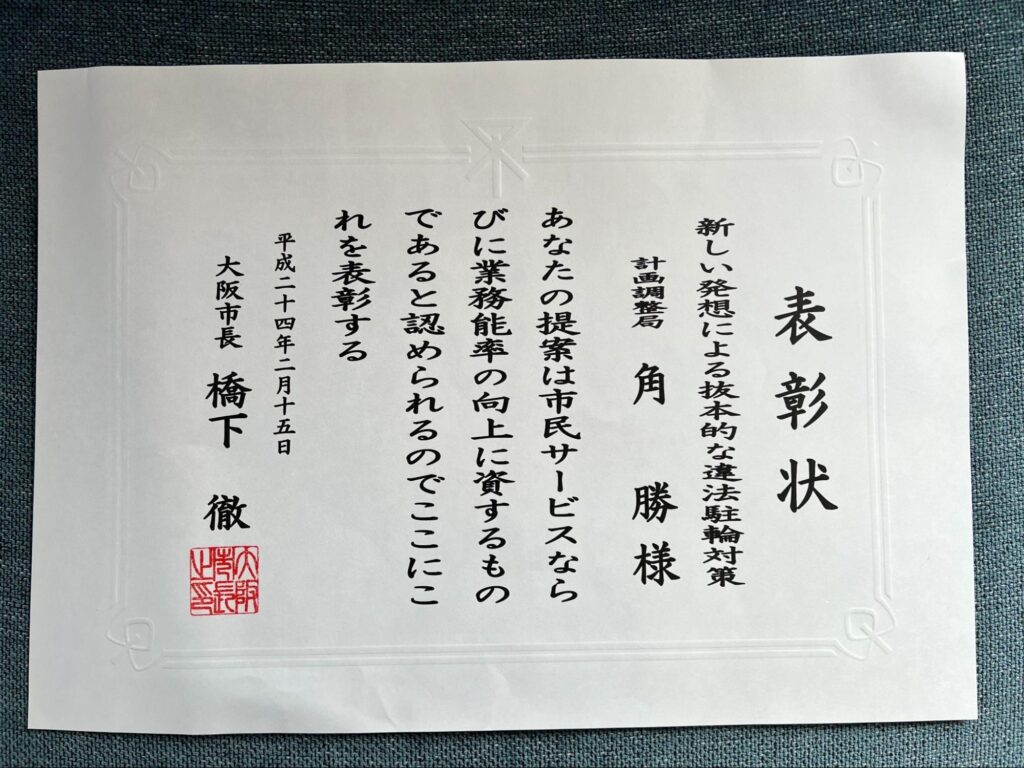 表彰状
新しい発想による抜本的な違法駐輪対策
計画調整局 角 勝 様
あなたの提案は市民サービスなら
びに業務能率の向上に資するもの
であると認められるのでここにこ
れを表彰する
平成二十四年二月十五日
大阪市長 橋下 徹
大阪市長之印